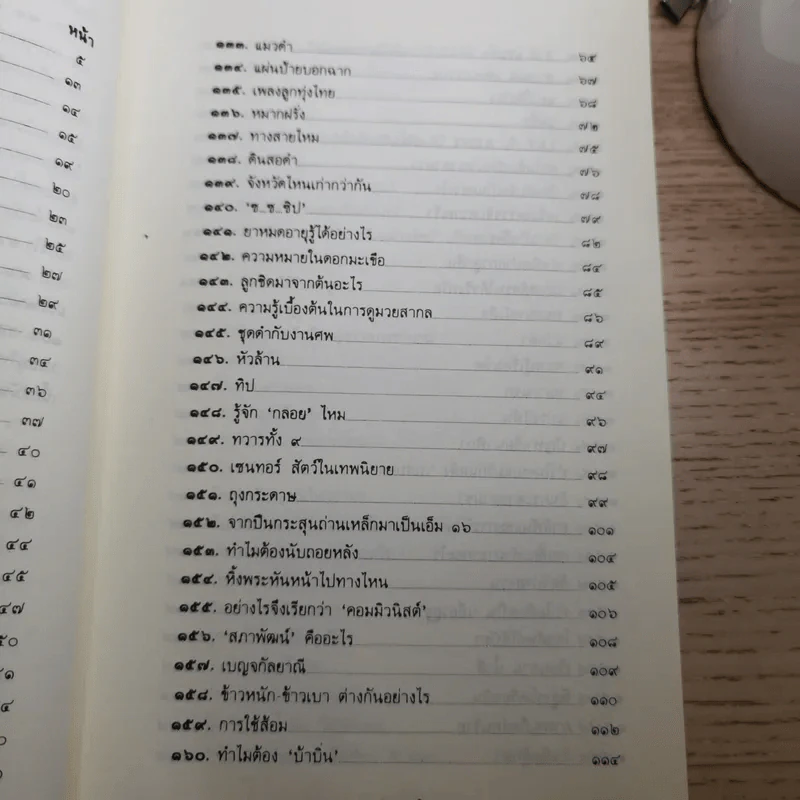 หน้า
๕
๑๓
๑๔
๑๕
๑๙
๒๐
๒๓
๒๕
๒๗
๒๙
๓๑
๓๔
๓๖
๓๗
๔๐
๔๑
๔๒
๔๔
๔๕
๔๗
๑๓๓. แมวดำ ๖๔
๑๓๔. แผ่นป้ายบอกฉาก ๖๗
๑๓๕. เพลงลูกทุ่งไทย ๖๘
๑๓๖. หมากฝรั่ง ๗๒
๑๓๗. ทางสายไหม ๗๕
๑๓๘. ดินสอดำ ๗๖
๑๓๙. จังหวัดไหนเก่ากว่ากัน ๗๘
๑๔๐. ‘ซ..ซ..ซิป’ ๗๙
๑๔๑. ยาหมดอายุรู้ได้อย่างไร ๘๒
๑๔๒. ความหมายในดอกมะเขือ ๘๔
๑๔๓. ลูกชิดมาจากต้นอะไร ๘๕
๑๔๔. ความรู้เบื้องต้นในการดูมวยสากล ๘๖
๑๔๕. ชุดดำกับงานศพ ๘๙
๑๔๖. หัวล้าน ๙๑
๑๔๗. ทิป ๙๔
๑๔๘. รู้จัก ‘กลอย’ ไหม ๙๖
๑๔๙. ทวารทั้ง ๙ ๙๗
๑๕๐. เซนทอร์ สัตว์ในเทพนิยาย ๙๘
๑๕๑. ถุงกระดาษ ๙๙
๑๕๒. จากปืนกระสุนถ่านเหล็กมาเป็นเอ็ม ๑๖ ๑๐๑
๑๕๓. ทำไมต้องนับถอยหลัง ๑๐๔
๑๕๔. หิ้งพระหันหน้าไปทางไหน ๑๐๕
๑๕๕. อย่างไรจึงเรียกว่า ‘คอมมิวนิสต์’ ๑๐๖
๑๕๖. ‘สภาพัฒน์’ คืออะไร ๑๐๘
๑๕๗. เบญจกัลยาณี ๑๐๙
๑๕๘. ข้าวหนัก-ข้าวเบา ต่างกันอย่างไร ๑๑๐
๑๕๙. การใช้ส้อม ๑๑๒
๑๖๐. ทำไมต้อง ‘บ้าบิ่น’ ๑๑๔